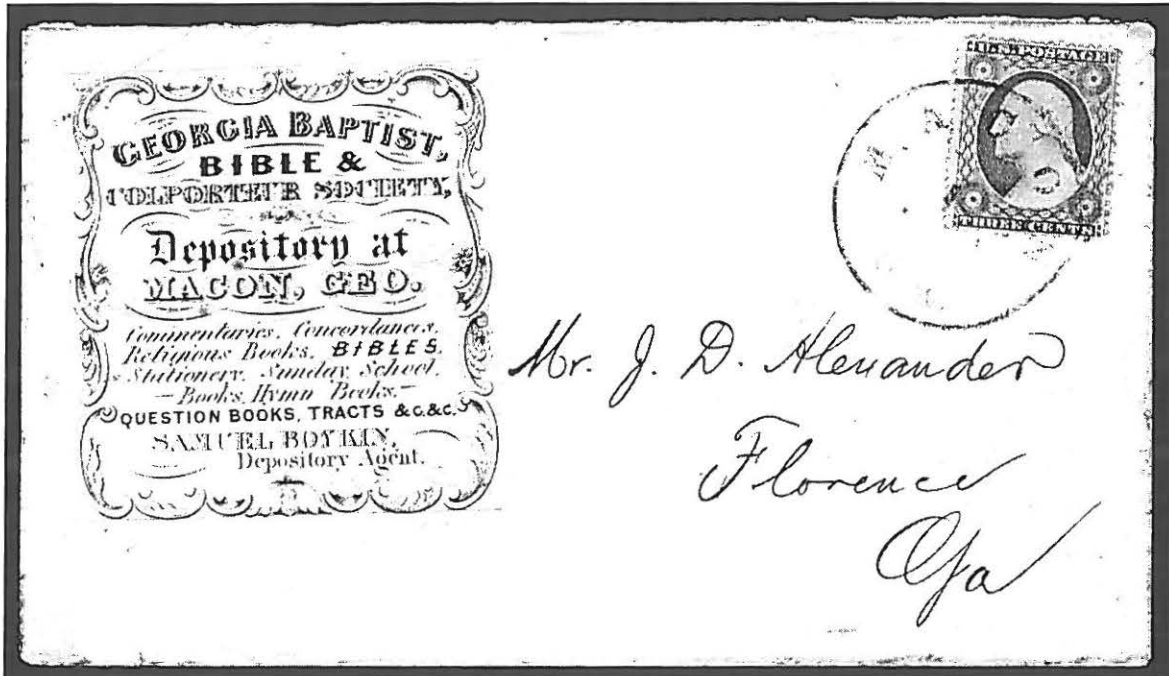 GEORGIA BAPTIST,
BIBLE &
COLPORTEUR SOCIETY,
Depository at
MACON, GEO.
Commentaries, Concordances,
Religious Books, BIBLES,
Stationery, Sunday School,
—Books, Hymn Books,—
QUESTION BOOKS, TRACTS &c.&c.
SAMUEL BOYKIN,
Depository Agent.
U.S. POSTAGE
THREE CENTS
Mr. J. D. Alexander
Florence
Ga